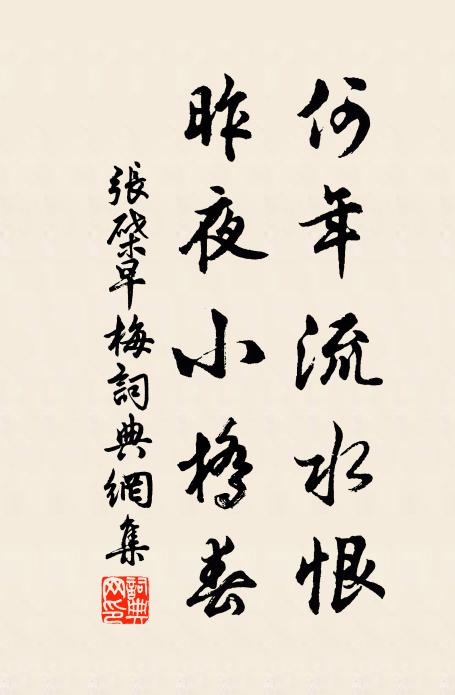 何年流水恨
昨夜小橋春
張檗早梅詞典網集
詞典网印